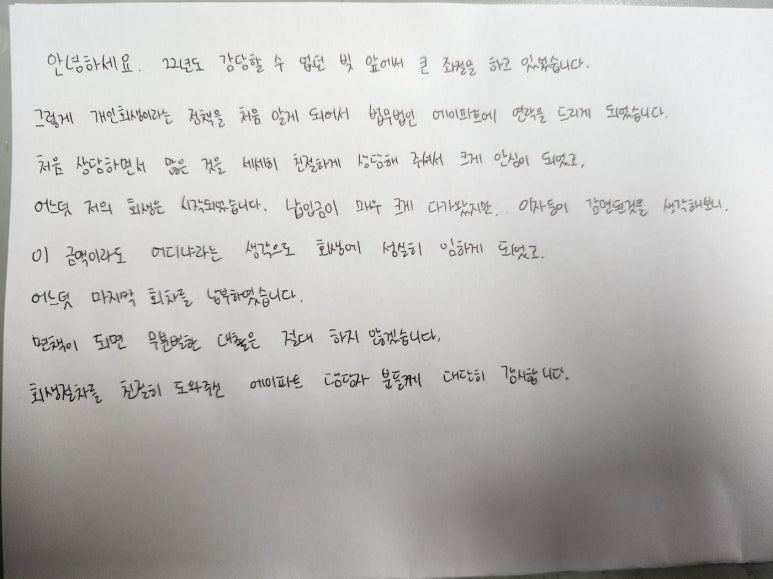 안녕하세요. 22년도 감당할 수 없던 빚 앞에서 큰 좌절을 하고 있었습니다.
그렇게 개인회생이라는 정책을 처음 알게 되어서 법무법인 에이파트에 연락을 드리게 되었습니다.
처음 상담하면서 많은 것을 세세히 친절하게 상담해 주셔서 크게 안심이 되었고,
어느덧 저의 회생은 시작되었습니다. 납입금이 매우 크게 다가왔지만, 이자등이 감면된것을 생각해보니.
이 금액이라도 어디냐라는 생각으로 회생에 성실히 임하게 되었고.
어느덧 마지막 회차를 납부하였습니다.
면책이 되면 무분별한 대출은 절대 하지 않겠습니다.
회생절차를 친절히 도와주신 에이파트 담당자 분들께 대단히 감사합니다.